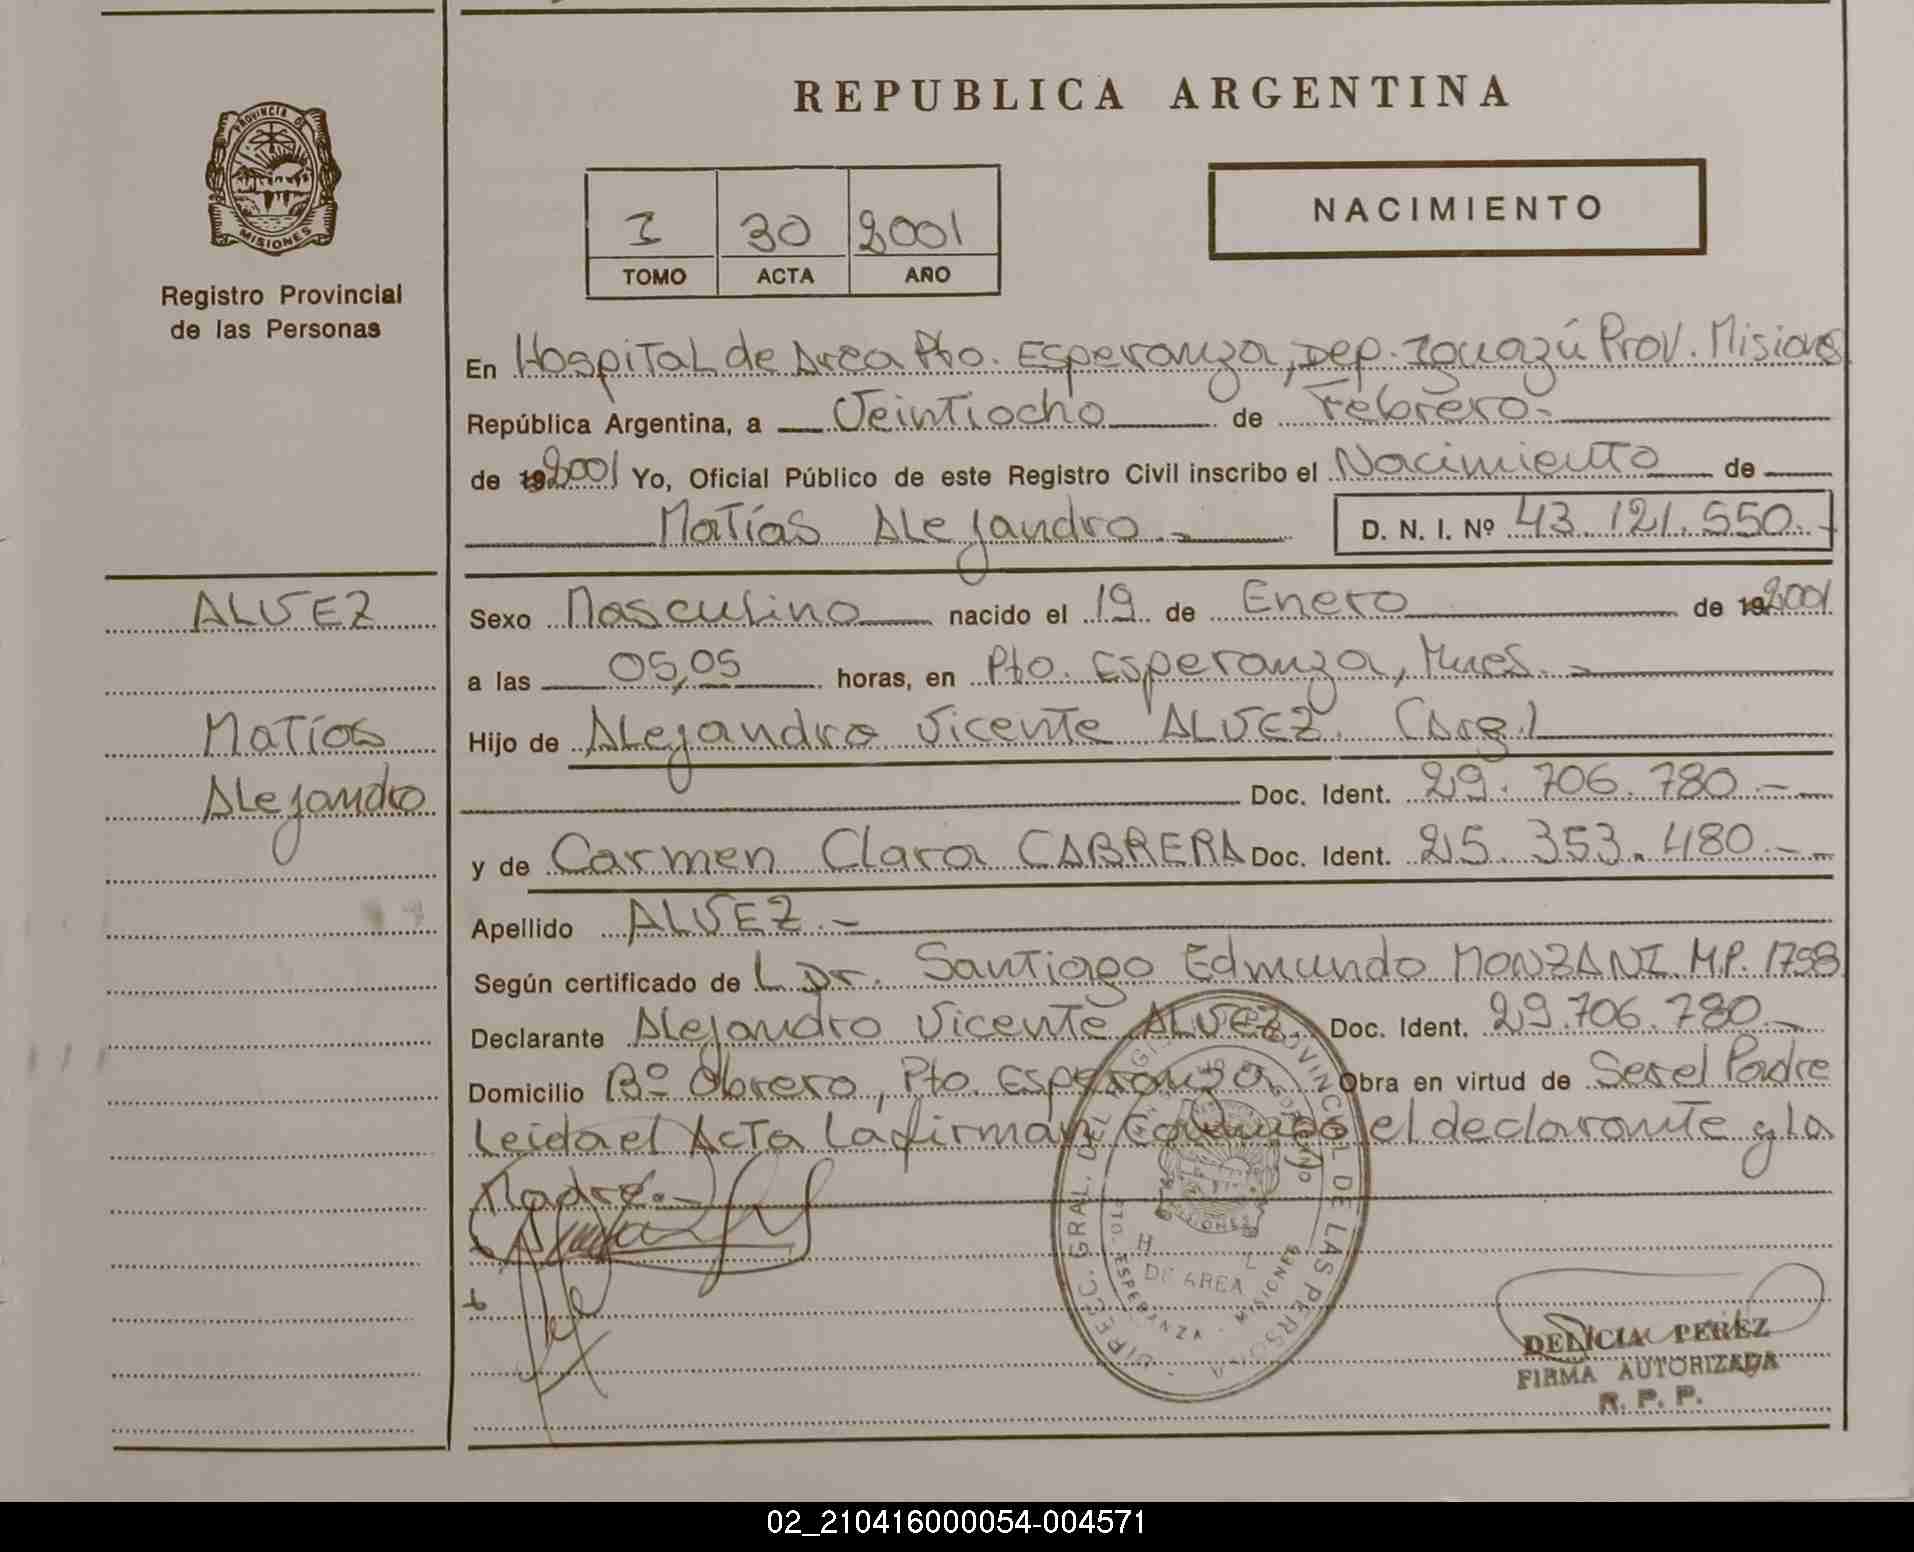 REPUBLICA ARGENTINA
PROVINCIA DE
MISIONES
Registro Provincial
de las Personas
I 30 2001
TOMO ACTA AÑO
NACIMIENTO
En Hospital de Area Pto. Esperanza, Dep. Iguazú Prov. Misiones
República Argentina, a Veintiocho de Febrero.-
de 192001 Yo, Oficial Público de este Registro Civil inscribo el Nacimiento de
Matías Alejandro.- D. N. I. Nº 43.121.550.-
ALVEZ
Matías
Alejandro
Sexo Masculino nacido el 19 de Enero de 192001
a las 05,05 horas, en Pto. Esperanza, Mnes.-
Hijo de Alejandro Vicente ALVEZ. (Arg.)
Doc. Ident. 29.706.780.-
y de Carmen Clara CABRERA Doc. Ident. 25.353.480.-
Apellido ALVEZ.-
Según certificado de L Dr. Santiago Edmundo MONZANI M.P. 1798
Declarante Alejandro Vicente ALVEZ. Doc. Ident. 29.706.780.-
Domicilio Bº Obrero, Pto. Esperanza Obra en virtud de Ser el Padre
Leida el Acta la firman el declarante y la
Madre.-
DIRECC. GRAL. DEL REGISTRO PROVINCIAL DE LAS PERSONAS
DE AREA
PTO. ESPERANZA - MISIONES
DELICIA PEREZ
FIRMA AUTORIZADA
R. P. P.
02_210416000054-004571